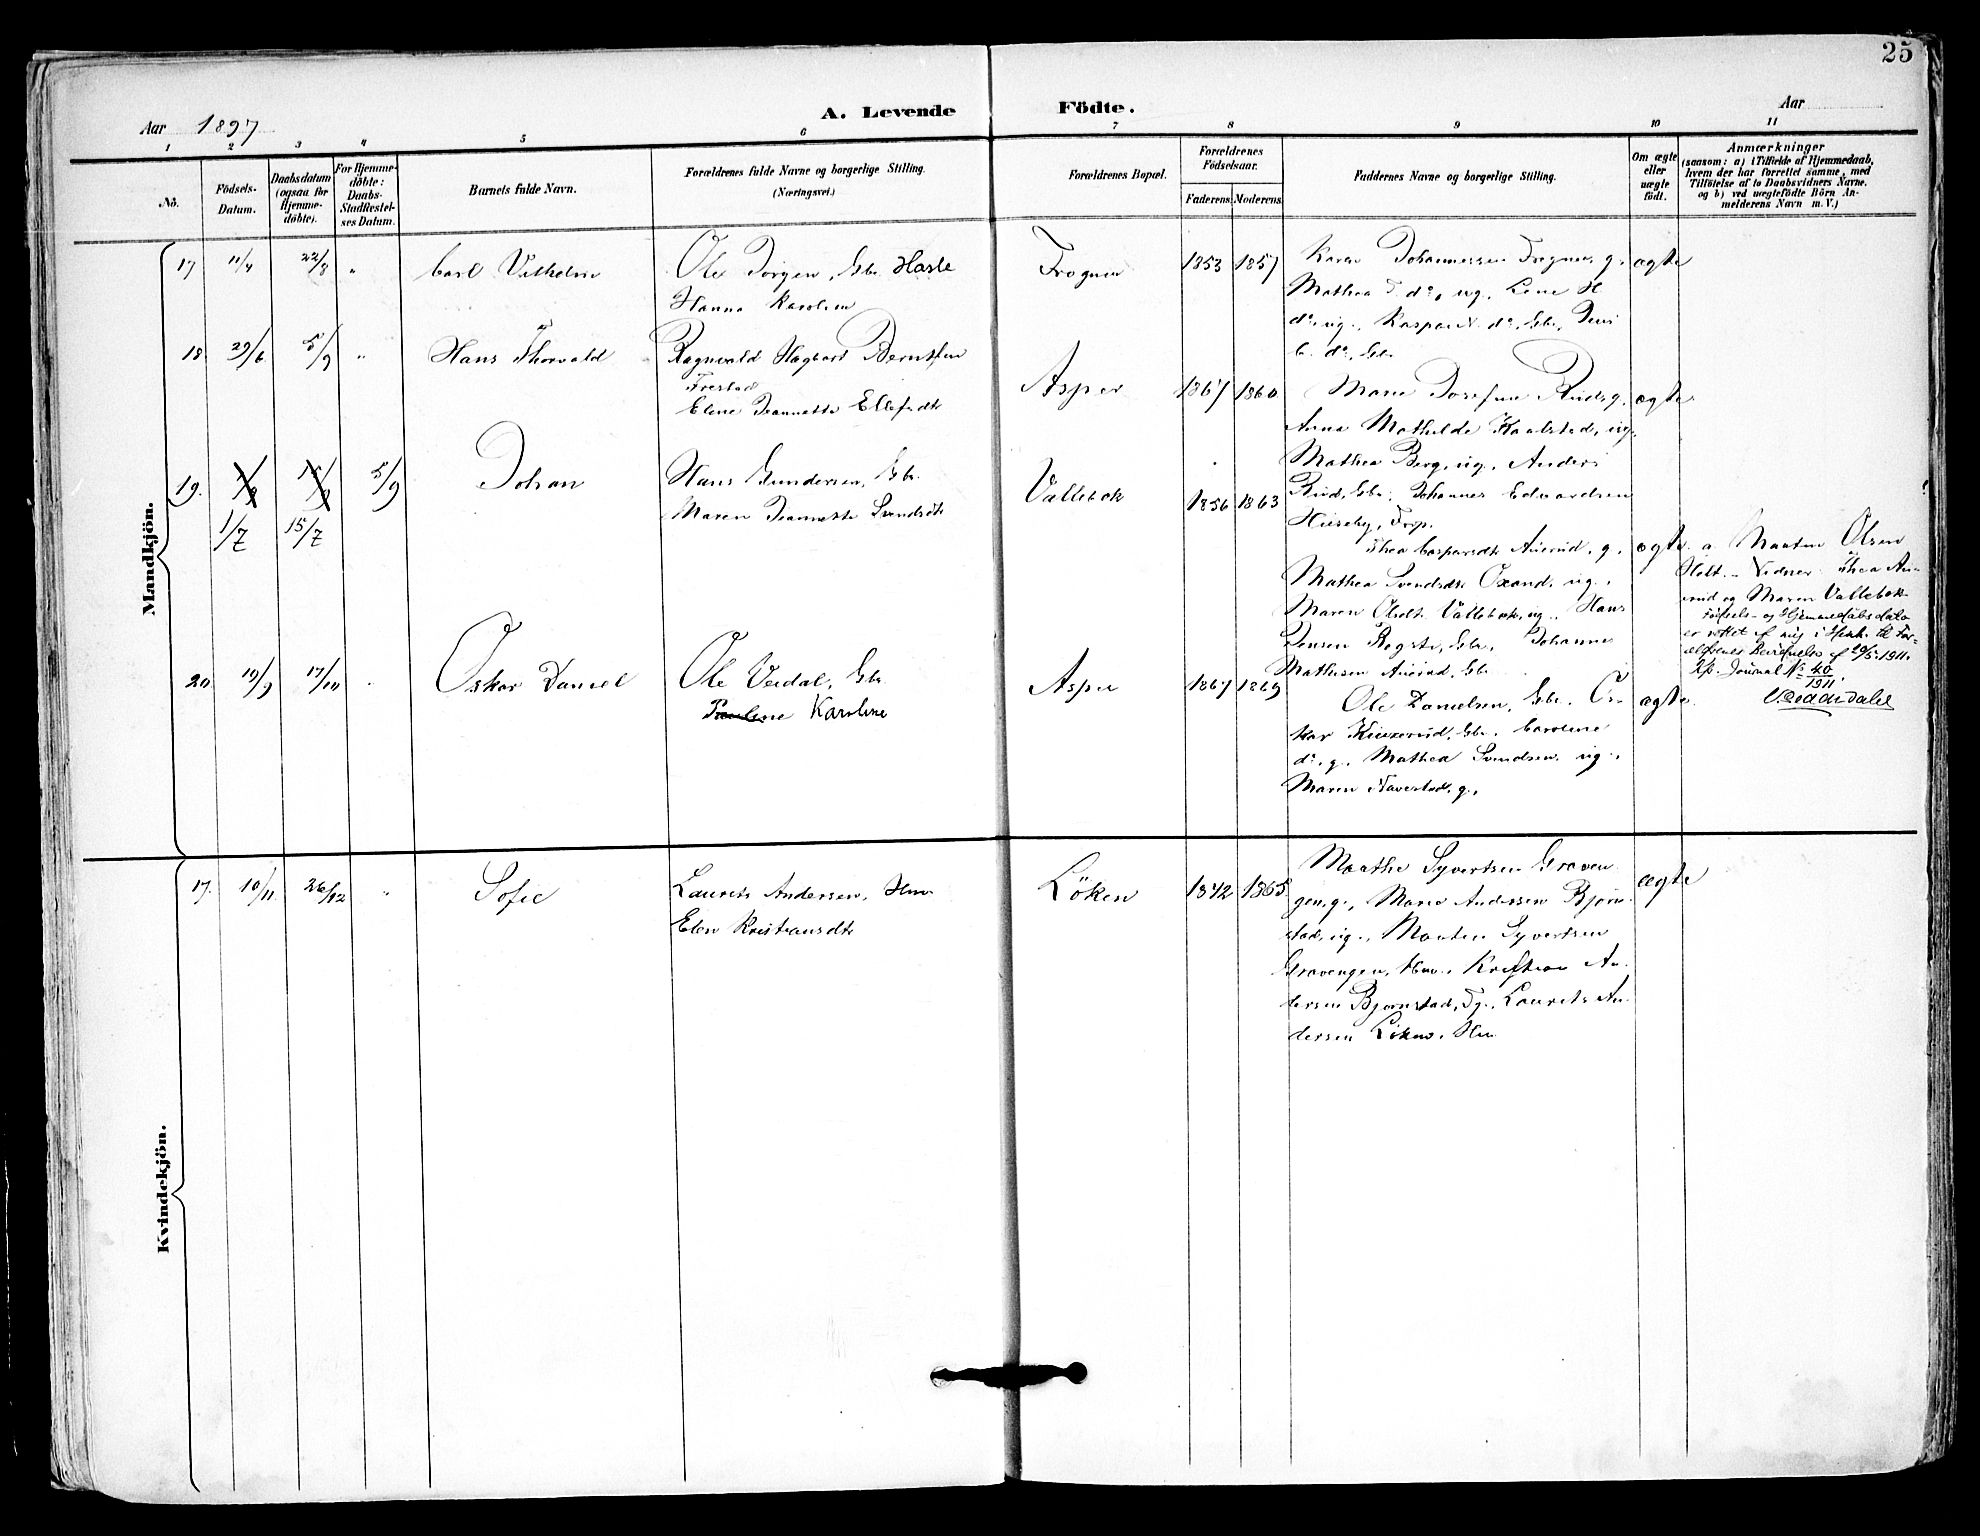 25
A. Levende Födte.
Aar 1897 Aar
1 2 3 4 5 6 7 8 9 10 11
No.
Födsels-
Datum.
Daabsdatum
(ogsaa for
Hjemme-
döbte).
For Hjemme-
döbte:
Daabs-
Stadfæstel-
ses Datum.
Barnets fulde Navn.
Forældrenes fulde Navne og borgerlige Stilling.
(Næringsvei.)
Forældrenes Bopæl.
Forældrenes
Födselsaar.
Faderens Moderens
Faddernes Navne og borgerlige Stilling.
Om ægte
eller
uægte
födt.
Anmærkninger
(saasom: a) i Tilfælde af Hjemmedaab,
hvem der har forrettet samme, med
Tilföielse af to Daabsvidners Navne.
og b) ved uægtefödte Börn An-
melderens Navn m. V.)
Mandkjön.
17 11/7 22/8 " Carl Vilhelm
Ole Jörgen, Gbr. Hasle
Hanna Karolsen
Frogner 1853 1857
Karen Johannessen Frogner, g.
Mathea F. do, ug., Lene H.
do, ug., Kaspar N. do, Gbr., Jens
C. do, Gbr.
ægte
18 29/6 5/9 " Hans Thorvald
Ragnvald Hagbart Berntsen
Frestad
Elene Jeannette Ellefsdtr
Asper 1867 1860
Marie Josefine Rud, g.
Anna Mathilde Kaalstad, ug.
Mathea Berg, ug., Anders
Rud, Gbr., Johannes Edvardsen
Huseby, Frp.
ægte
19. 5/9 Johan
1/7 15/7
Hans Gundersen, Gbr.
Maren Jeannette Svendsdtr
Vallebæk 1856 1863
Thea Caspersdtr Auerud, g.,
Mathea Svendsdtr Oxand, ug.,
Maren Olsdtr Vallebæk, ug., Hans
Jensen Bogstr, Gbr., Johannes
Mathisen Auerud, Gbr.
ægte
a Maaten Olsen
Holt. - Vidner: Thea Au-
erud og Maren Vallebæk.
Födsels- og Hjemmedaabsdata
er rettet af mig i Henh. til For-
ældrenes Bevidnelse af 20/5 1911.
Kp. Journal No 40/1911.
20 19/9 17/10 " Oskar Daniel
Ole Verdal, Gbr.
Pauline Karoline
Asper 1867 1869
Ole Danielsen, Gbr. Os-
kar Kiuserud, Gbr. Caroline
do, g., Mathea Svendsen, ug.,
Maren Naverstad, g.,
ægte
Kvindekjön.
17. 10/11 26/12 " Sofie
Laurits Andersen, Hm.
Elen Kristiansdtr
Löken 1842 1865
Maathe Syvertsen Graven
gen, g., Marie Andersen Björn
stad, ug., Maaten Syvertsen
Gravengen, Hm., Kristian An-
dersen Björnstad, Fg., Laurits An-
dersen Löken, Hm
ægte